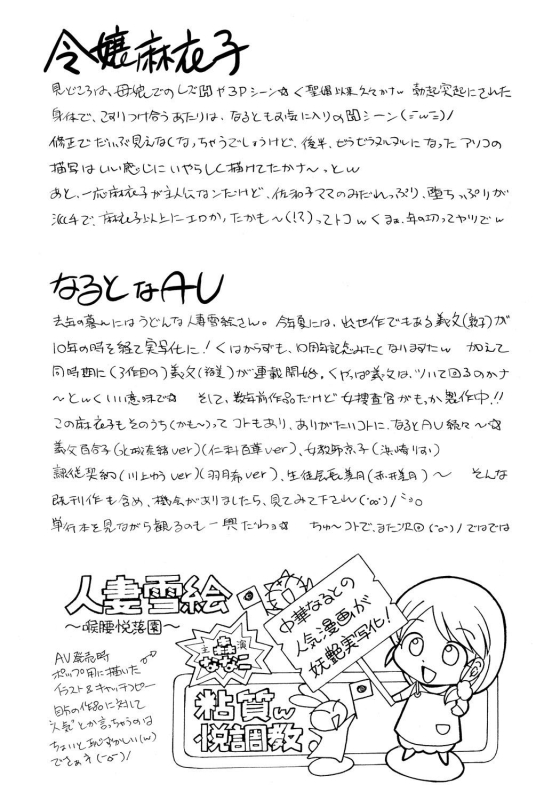 令嬢麻衣子
見どころは、母娘でのレズ図や3Pシーン☆ く聖娼以来久々かナw 勃起突起にされた
身体で、こすりつけ合うあたりは、なるともお気に入りの図シーン(ニ´w`ニ)/
修正でだいぶ見えなくなっちゃうでしょうけど、後半、ビラビラヌルヌルになったアソコの
描写はいい感じにいやらしく描けてたかナ〜っとw
あと、一応麻衣子が主人公なンだけど、佐和子ママのみだれっぷり、堕ちっぷりが
派手で、麻衣子以上にエロかったかも〜(!?)ってトコw くまぁ、年の功ってヤツでw
なるとなAV
去年の暮れにはうどんな人妻雪絵さん。今年夏には、出世作でもある義父(敦子)が
10年の時を経て実写化に! くはからずも、10周年記念みたくなりますたw 加えて
同時期に(3作目の)義父()が連載開始。くやっぱ義父は、ツいて回るのかナ
〜とw くいい意味で☆ そして、数年前作品だけど女捜査官がもっか製作中!!
この麻衣子もそのうち(かも〜)ってコトもあり、ありがたいコトに、なるとAV続々〜☆
義父百合子(水城奈緒ver)(仁科百華ver)、女教師京子(浜崎りお)
隷従契約(川上ゆうver)(羽月希ver)、生徒会長美月(赤井美月) 〜 そんな
既刊作も含め、機会がありましたら、見てみて下さいん(´oo`)/ミ。
単行本を見ながら観るのも一興だわョ☆ ちゅ〜コトで、また次回(´o`)/ ではでは
人妻雪絵
〜喉腰悦落園〜
主演
ななこ
中華なるとの
人気漫画が
妖艶実写化!
粘質w
悦調教。
AV発売時
ポップ用に描いた
イラスト&キャッチコピー
自分の作品に対して
"人気"とか言っちゃうのは
ちょいと恥ずかしい(w)
でさぁネ(´o`)/